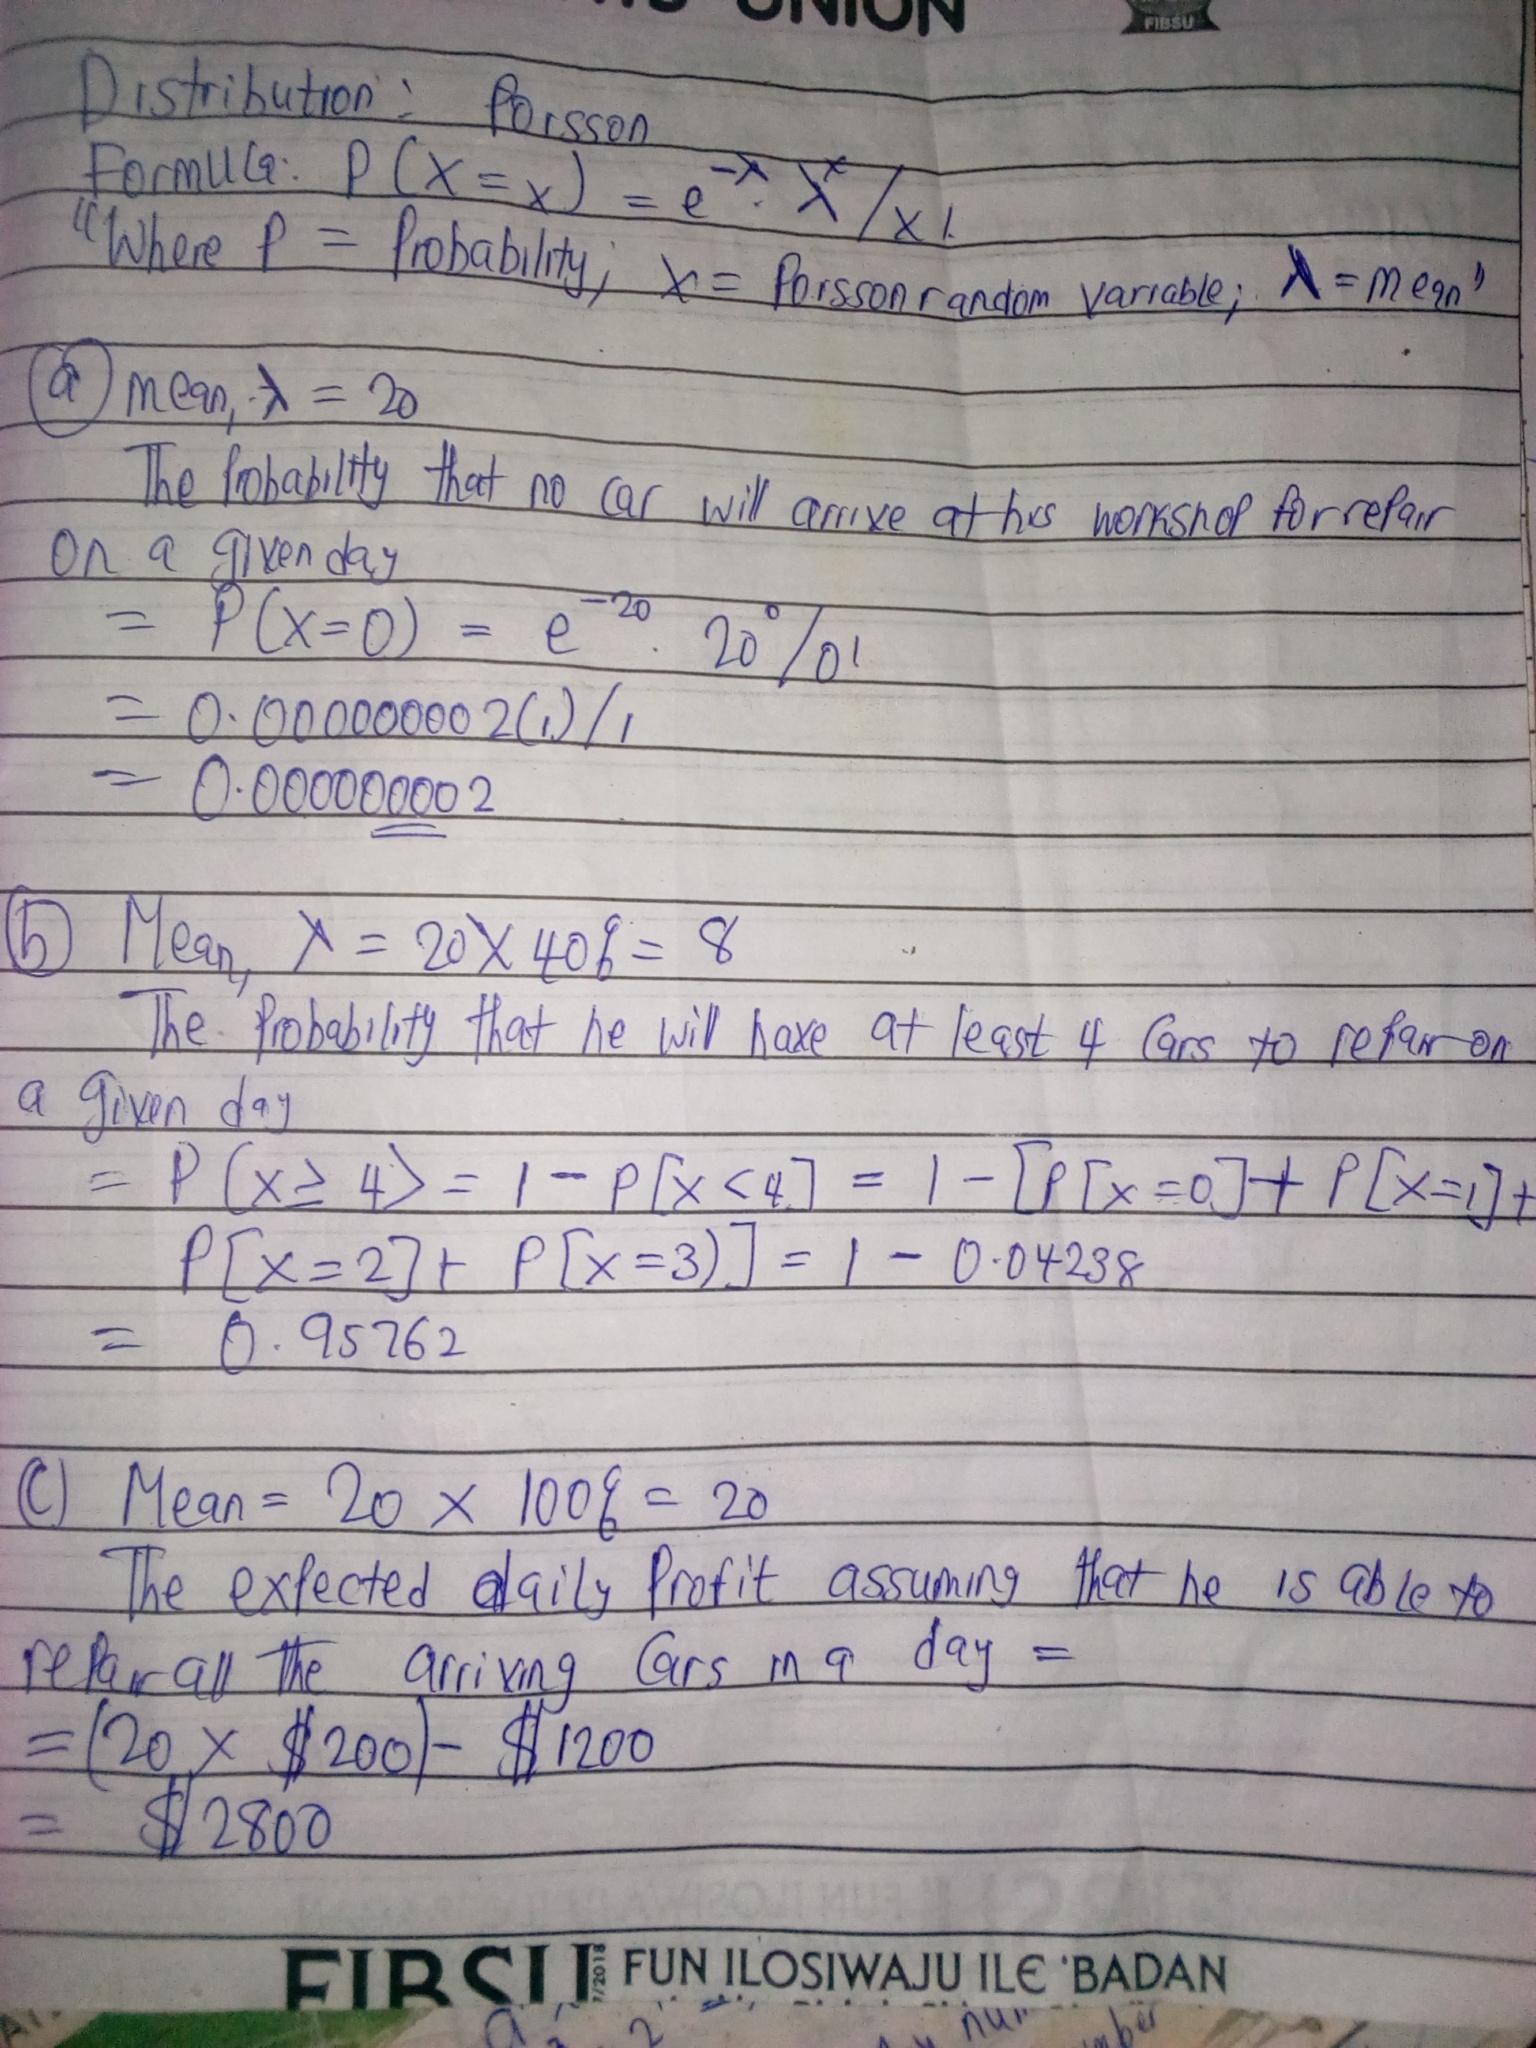 UNION
FIBSU
Distribution: Poisson
Formula: P(X=x) = e^-λ . λ^x/x!
"Where P = Probability; x = Poisson random variable; λ = mean"
(a) mean, λ = 20
The Probability that no car will arrive at his workshop for repair
on a given day
= P(X=0) = e^-20 . 20^0/0!
= 0.000000002(1)/1
= 0.000000002
(b) Mean, λ = 20 X 40% = 8
The Probability that he will have at least 4 Cars to repair on
a given day
= P(x≥4) = 1 - P[x<4] = 1 - [P[x=0] + P[x=1] +
P[x=2] + P[x=3)] = 1 - 0.04238
= 0.95762
(C) Mean = 20 x 100% = 20
The expected daily Profit assuming that he is able to
repair all the arriving Cars in a day =
= (20 x $200) - $1200
= $2800
FIBSU 7/2018 FUN ILOSIWAJU ILE 'BADAN